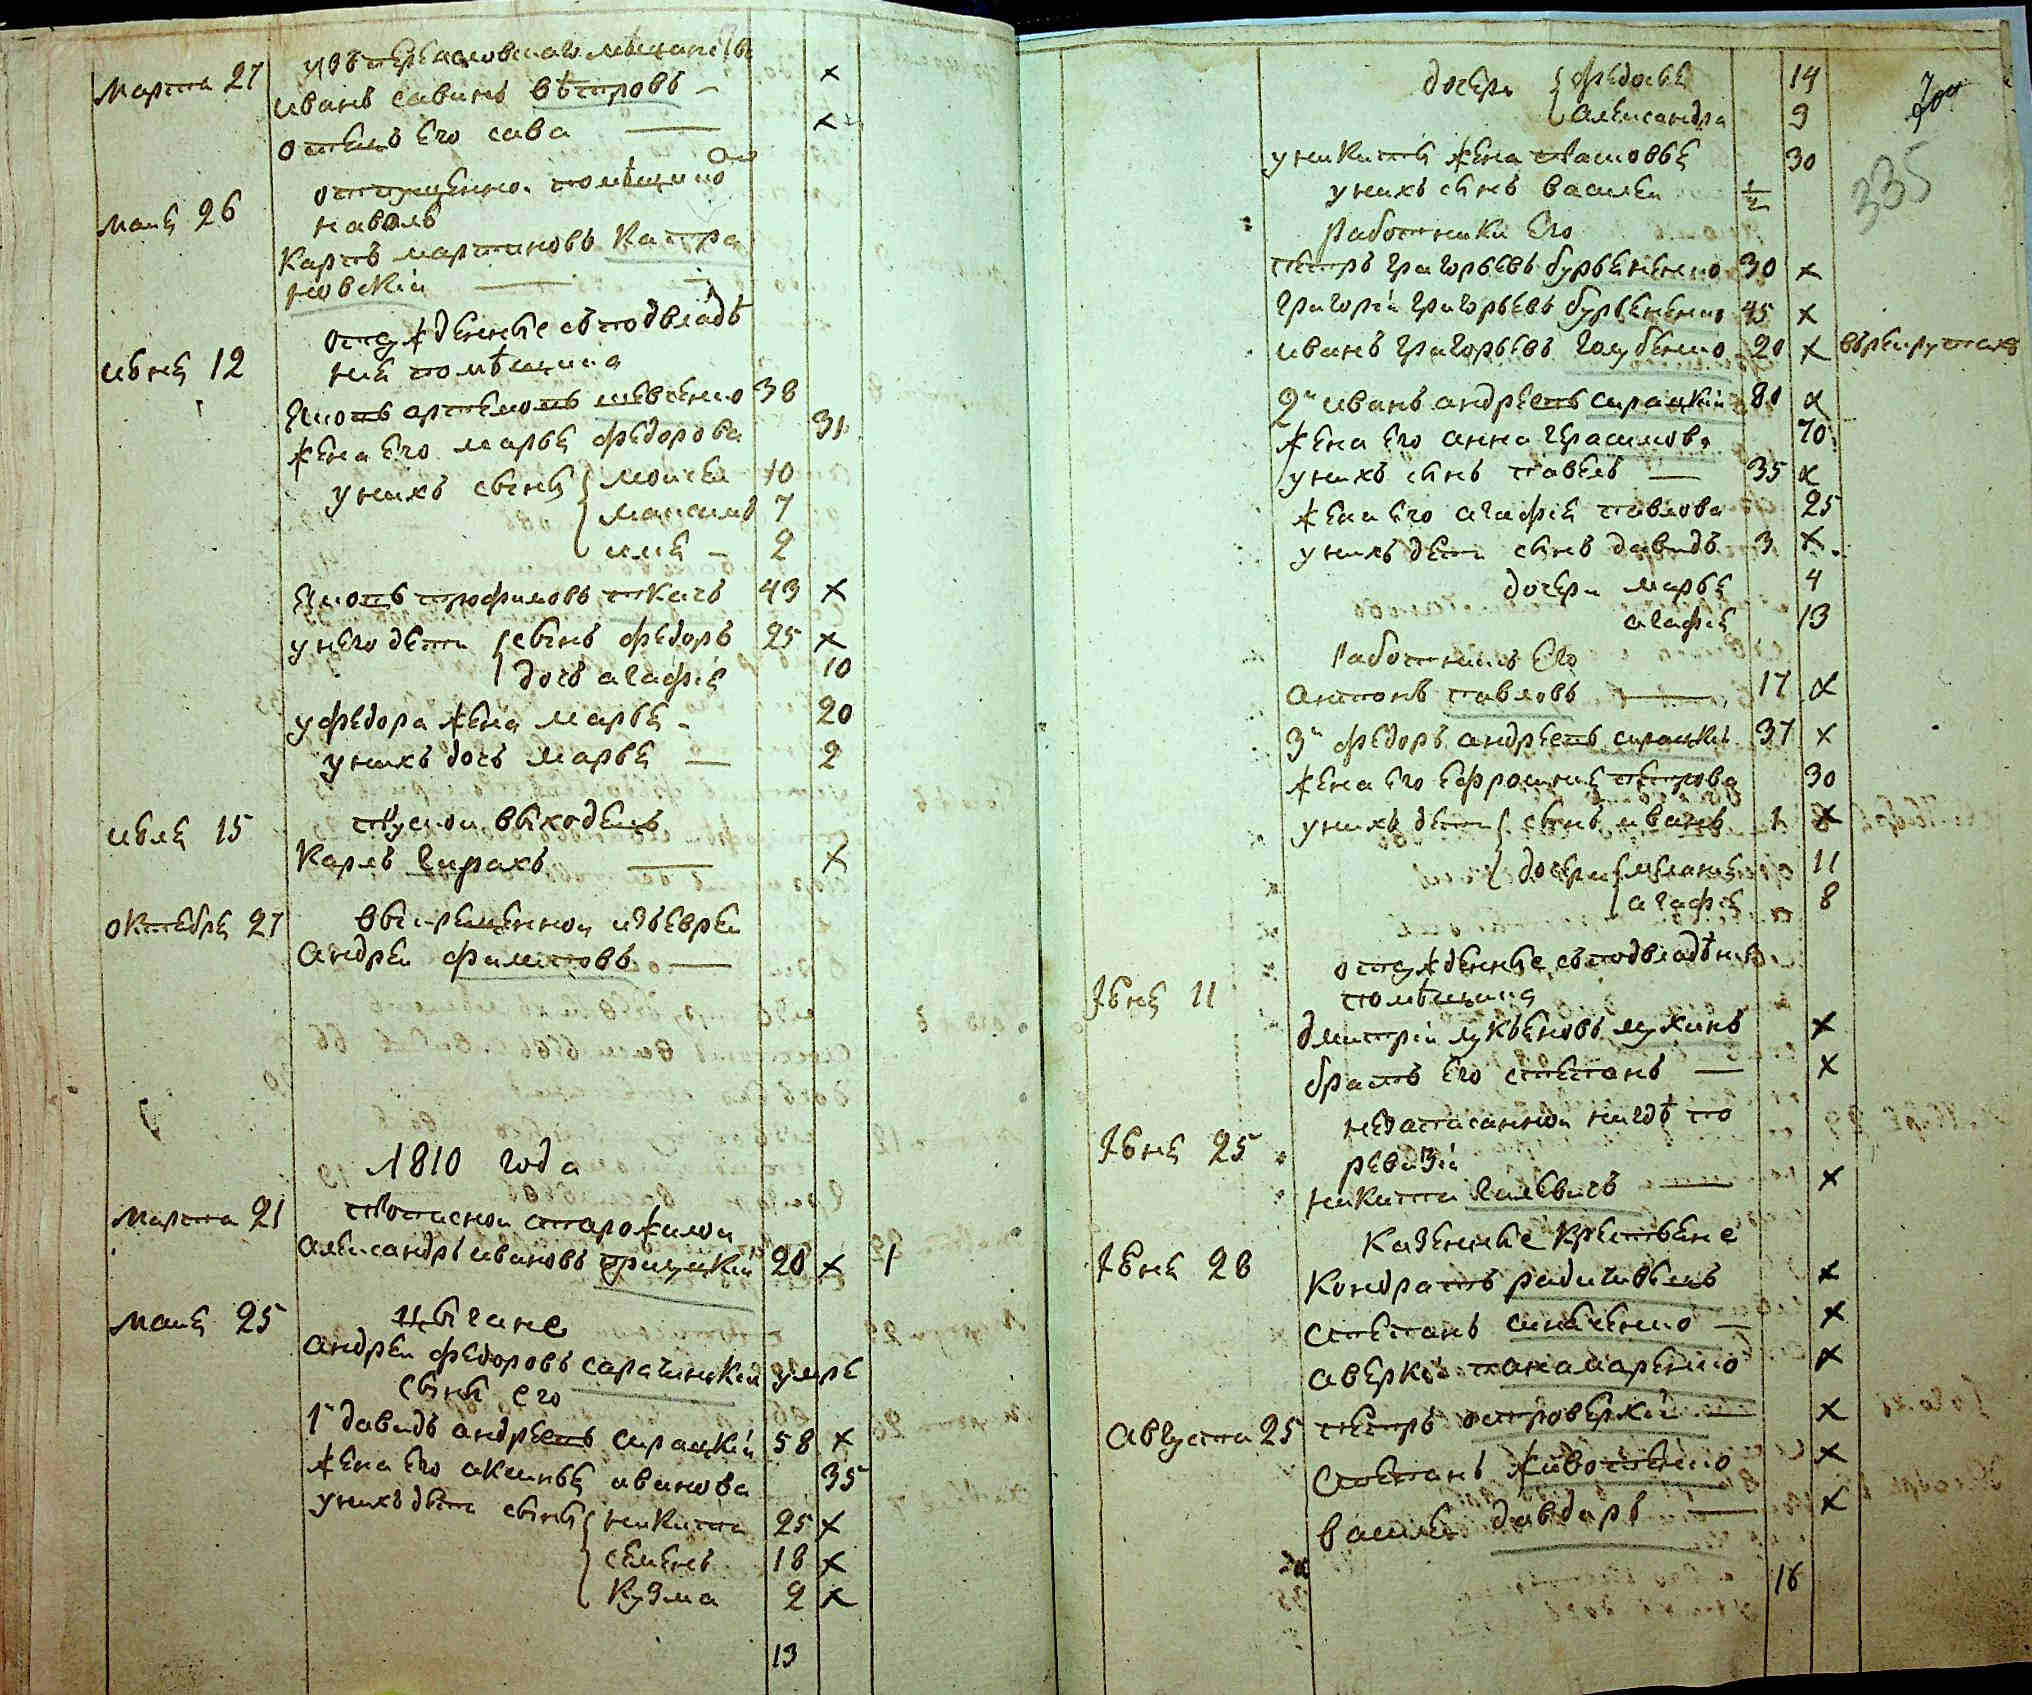 Марта 27 изъ переясловскаго мещанства
иванъ савинъ вѣтровъ — х
отецъ его сава — х
отпущенной помѣщикомъ
маия 26 наволь
Карпъ мартиновъ Кастра
новскій —
отсужденные съ подвладѣ
июня 12 ния помѣщика
Яковъ артемовъ шевченко 38
жена его марья федорова 31
у нихъ сыны моисеи 10
максимъ 7
илия — 2
Яковъ трофимовъ ткачъ 43 х
у него дети сынъ федоръ 25 х
дочь агафия 10
у федора жена марья — 20
у нихъ дочь марья — 2
июля 15 прускои выходецъ
Карлъ Гирахъ — х
октября 27 выкрещеннои изъ евреи
андреи филиповъ —
1810 года
Марта 21 подписнои старожилои
александръ ивановъ грицкий 20 х 1
маия 25 цыгане
андреи федоровъ сарацкии умре
сыны его
1й давидъ андреевъ сирацкій 58 х
жена его аксинья иванова 35
у нихъ дети сыны никита 25 х
семенъ 18 х
Кузма 2 х
13
дочери федосья 14
александра 9
335
у никиты жена 30
у нихъ сынъ василеи ½
работники его
петръ григорьевъ бурьяненко 30 х
григорій григорьевъ бурьяненко 45 х
иванъ григорьевъ голубенко 20 х въ рекрутахъ
2й иванъ андреевъ сирацкіи 80 х
жена его анна герасимова 70
у нихъ сынъ павелъ — 35 х
жена его агафія павлова 25
у нихъ дети сынъ давидъ 3 х
дочери марья 4
агафія 13
работникъ его
антонъ павловъ — 17 х
3й федоръ андреевъ сирацкій 37 х
жена его ефросиния петрова 30
у нихъ дети сынъ иванъ 1 х
дочери меланія 11
агафія 8
отсужденные съ подвладѣния
Іюня 11 помѣщика
дмитріи лукьяновъ лукинъ х
братъ его степанъ — х
незаписаннои нигдѣ по
Іюня 25 ревизіи
никита — х
Казенные крестьяне
Іюня 28 Кондратъ х
степанъ — х
аверкій панамаренко х
августа 25 петръ островерхій — х
степанъ х
василеи давдаръ — х
16